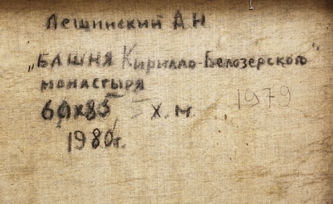 Лещинский А.Н
„БАШНЯ Кирилло-Белозерского"
монастыря
60х85 х.м. 1979
1980г.